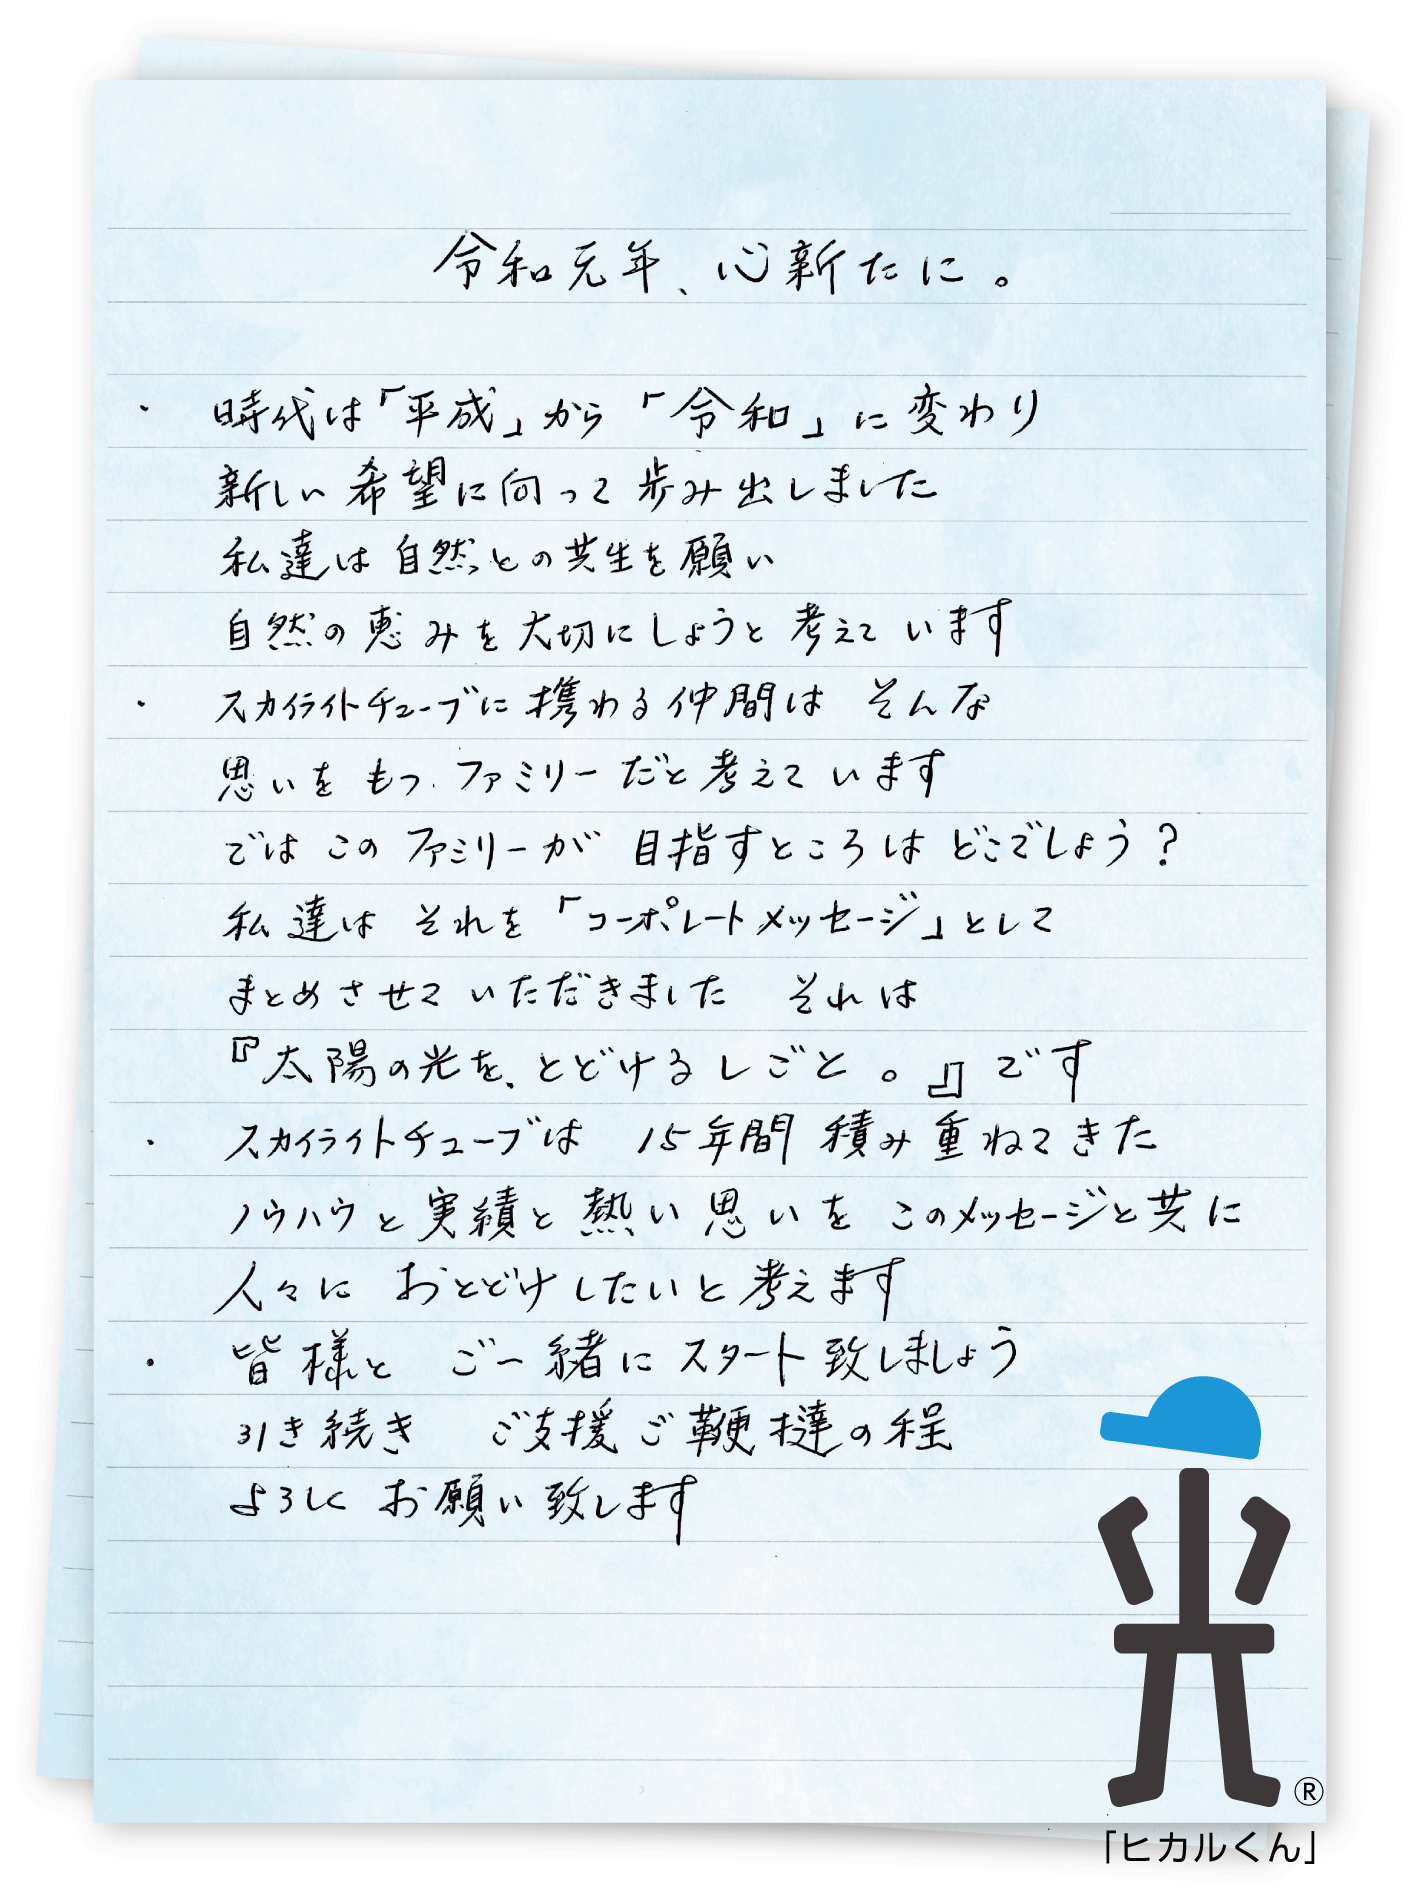 令和元年、心新たに。
・ 時代は「平成」から「令和」に変わり
新しい希望に向って歩み出しました
私達は自然との共生を願い
自然の恵みを大切にしようと考えています
・ スカイライトチューブに携わる仲間は そんな
思いをもつファミリーだと考えています
では このファミリーが 目指すところは どこでしょう?
私達は それを「コーポレートメッセージ」として
まとめさせていただきました それは
『太陽の光を、とどけるしごと。』です
・ スカイライトチューブは 15年間 積み重ねてきた
ノウハウと実績と熱い思いを このメッセージと共に
人々に おとどけしたいと考えます
・ 皆様と ご一緒にスタート致しましょう
引き続き ご支援ご鞭撻の程
よろしく お願い致します
®
「ヒカルくん」